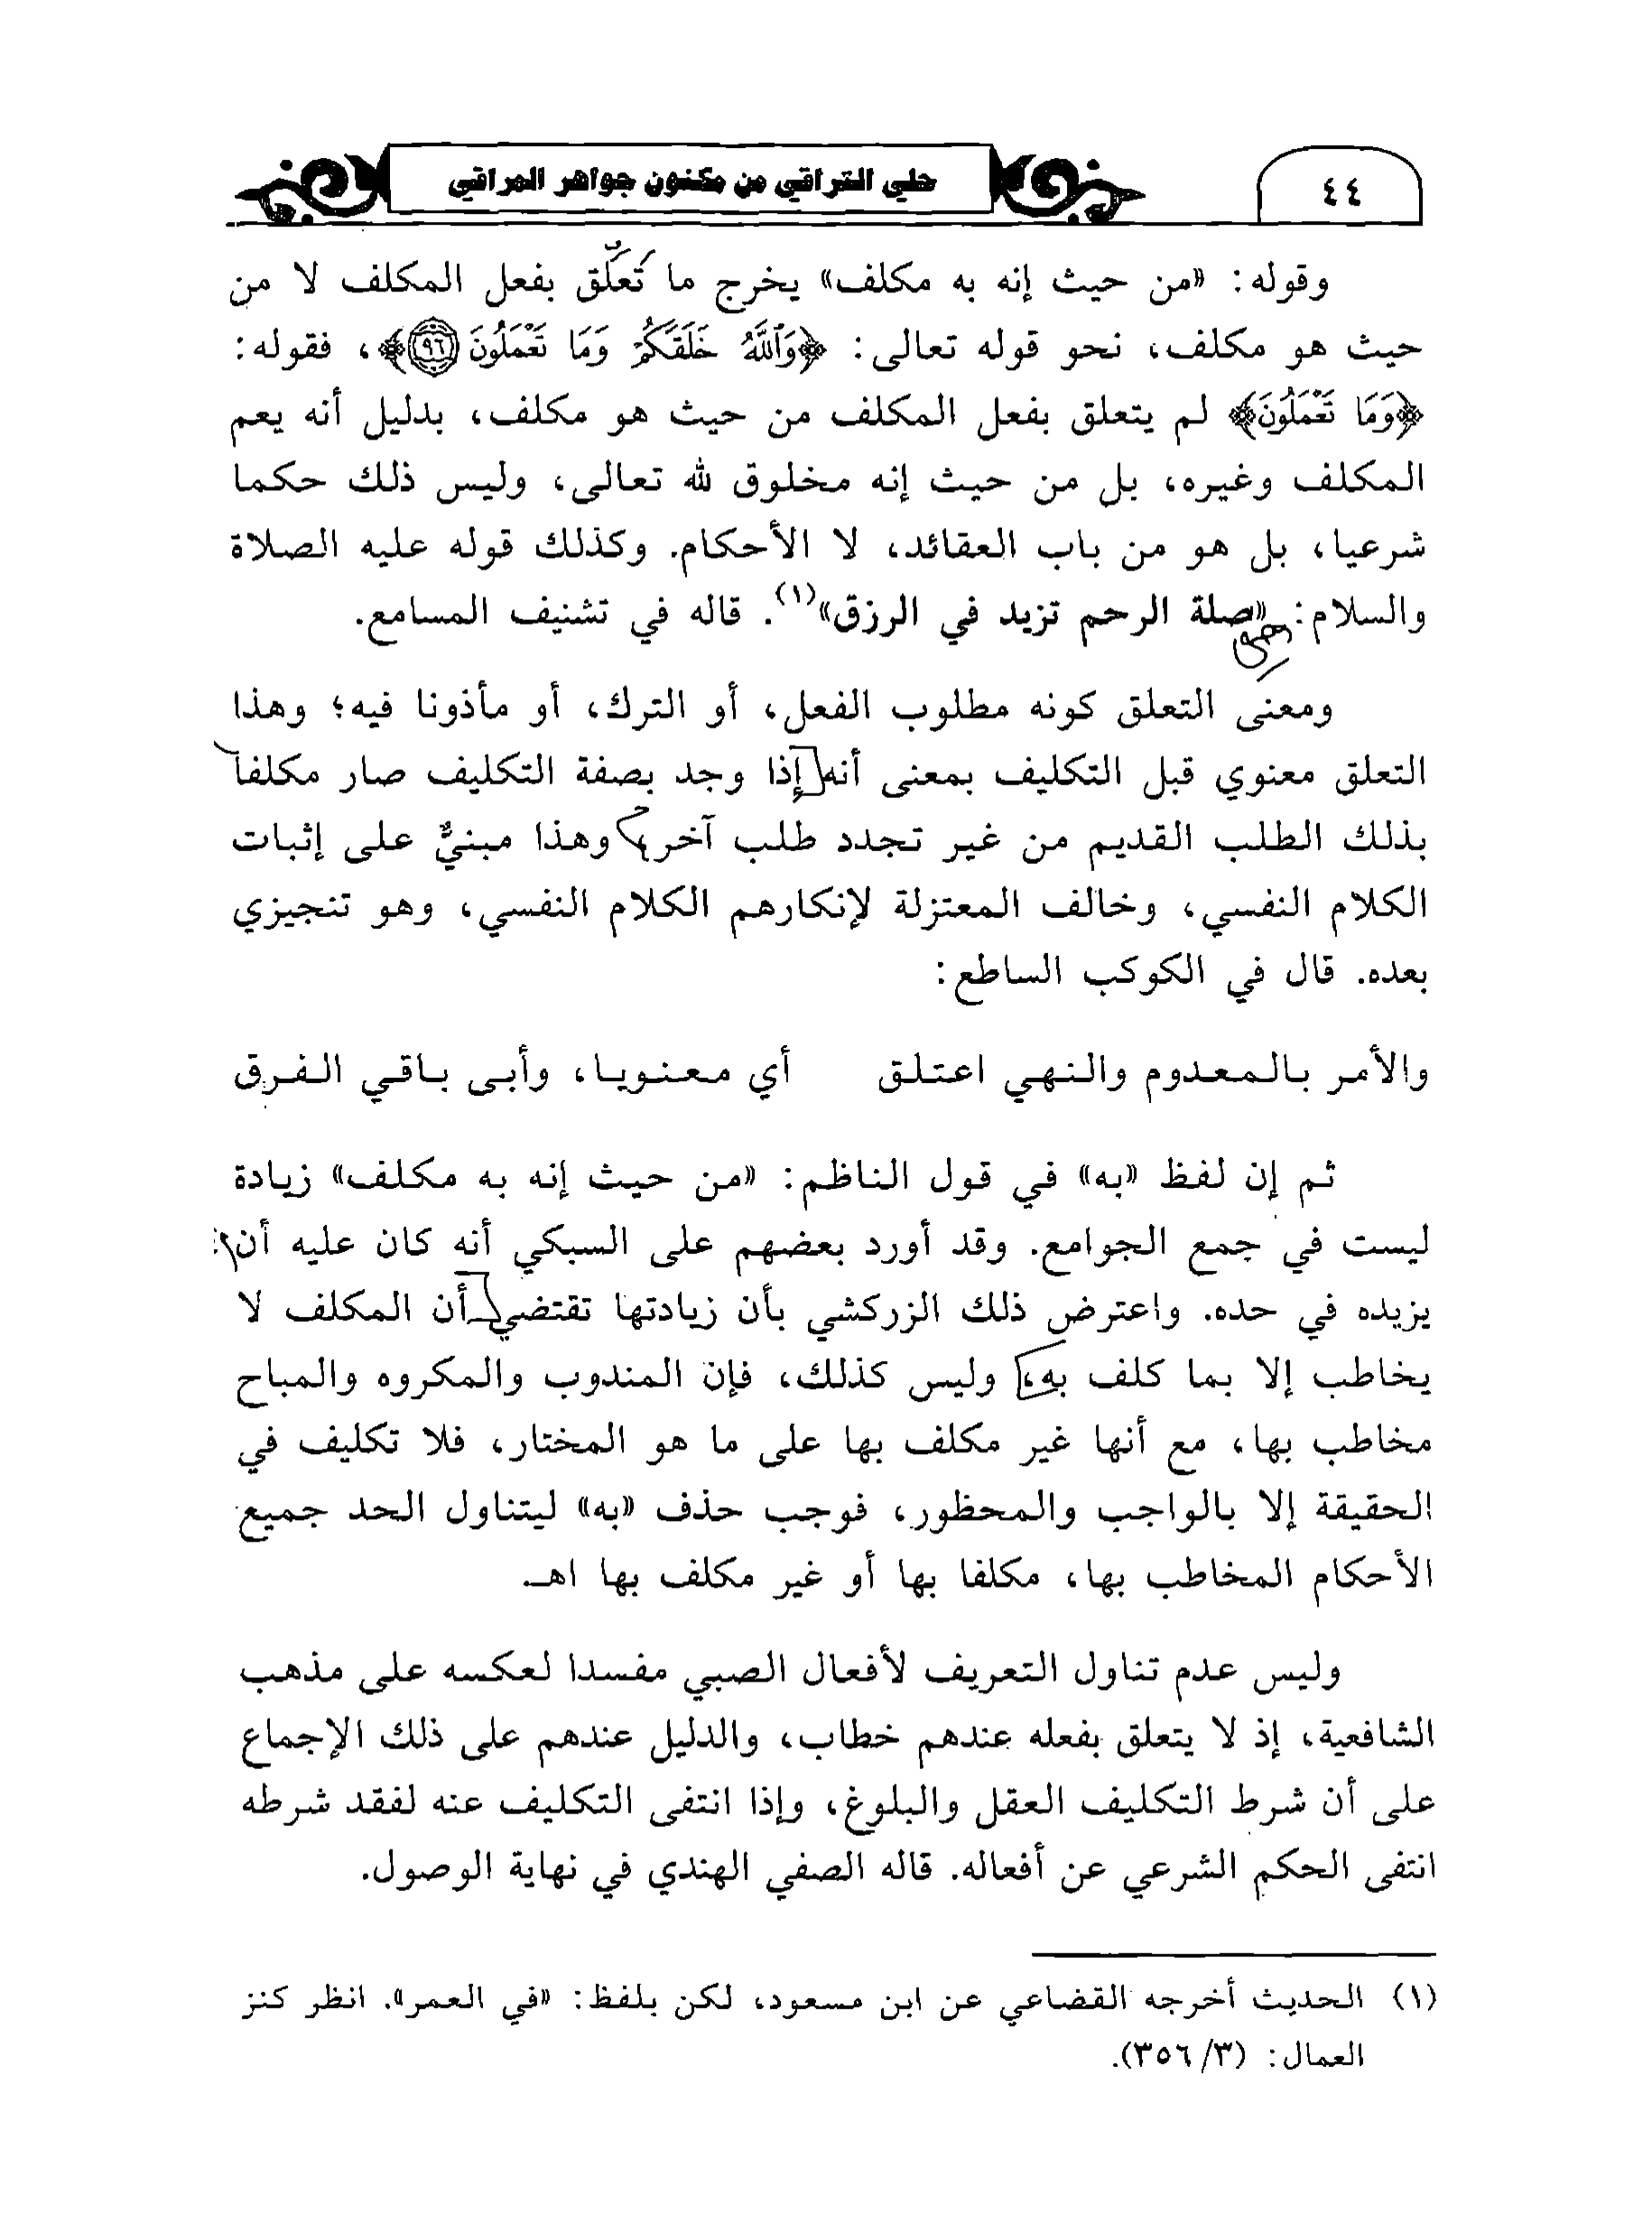 ٤٤
حلي التراقي من مكنون جواهر المراقي
وقوله: «من حيث إنه به مكلف» يخرج ما تَعلّق بفعل المكلف لا من
حيث هو مكلف، نحو قوله تعالى: ﴿وَٱللَّهُ خَلَقَكُمۡ وَمَا تَعۡمَلُونَ ٩٦﴾، فقوله:
﴿وَمَا تَعۡمَلُونَ﴾ لم يتعلق بفعل المكلف من حيث هو مكلف، بدليل أنه يعم
المكلف وغيره، بل من حيث إنه مخلوق لله تعالى، وليس ذلك حكما
شرعيا، بل هو من باب العقائد، لا الأحكام. وكذلك قوله عليه الصلاة
والسلام: «صلة الرحم تزيد في الرزق»(١). قاله في تشنيف المسامع.
ومعنى التعلق كونه مطلوب الفعل، أو الترك، أو مأذونا فيه؛ وهذا
التعلق معنوي قبل التكليف بمعنى أنه إذا وجد بصفة التكليف صار مكلفا
بذلك الطلب القديم من غير تجدد طلب آخر، وهذا مبنيٌّ على إثبات
الكلام النفسي، وخالف المعتزلة لإنكارهم الكلام النفسي، وهو تنجيزي
بعده. قال في الكوكب الساطع:
والأمر بالمعدوم والنهي اعتلق أي معنويا، وأبى باقي الفرق
ثم إن لفظ «به» في قول الناظم: «من حيث إنه به مكلف» زيادة
ليست في جمع الجوامع. وقد أورد بعضهم على السبكي أنه كان عليه أن
يزيده في حده. واعترض ذلك الزركشي بأن زيادتها تقتضي أن المكلف لا
يخاطب إلا بما كلف به، وليس كذلك، فإن المندوب والمكروه والمباح
مخاطب بها، مع أنها غير مكلف بها على ما هو المختار، فلا تكليف في
الحقيقة إلا بالواجب والمحظور، فوجب حذف «به» ليتناول الحد جميع
الأحكام المخاطب بها، مكلفا بها أو غير مكلف بها اهـ.
وليس عدم تناول التعريف لأفعال الصبي مفسدا لعكسه على مذهب
الشافعية، إذ لا يتعلق بفعله عندهم خطاب، والدليل عندهم على ذلك الإجماع
على أن شرط التكليف العقل والبلوغ، وإذا انتفى التكليف عنه لفقد شرطه
انتفى الحكم الشرعي عن أفعاله. قاله الصفي الهندي في نهاية الوصول.
(١) الحديث أخرجه القضاعي عن ابن مسعود، لكن بلفظ: «في العمر». انظر كنز
العمال: (٣/ ٣٥٦).